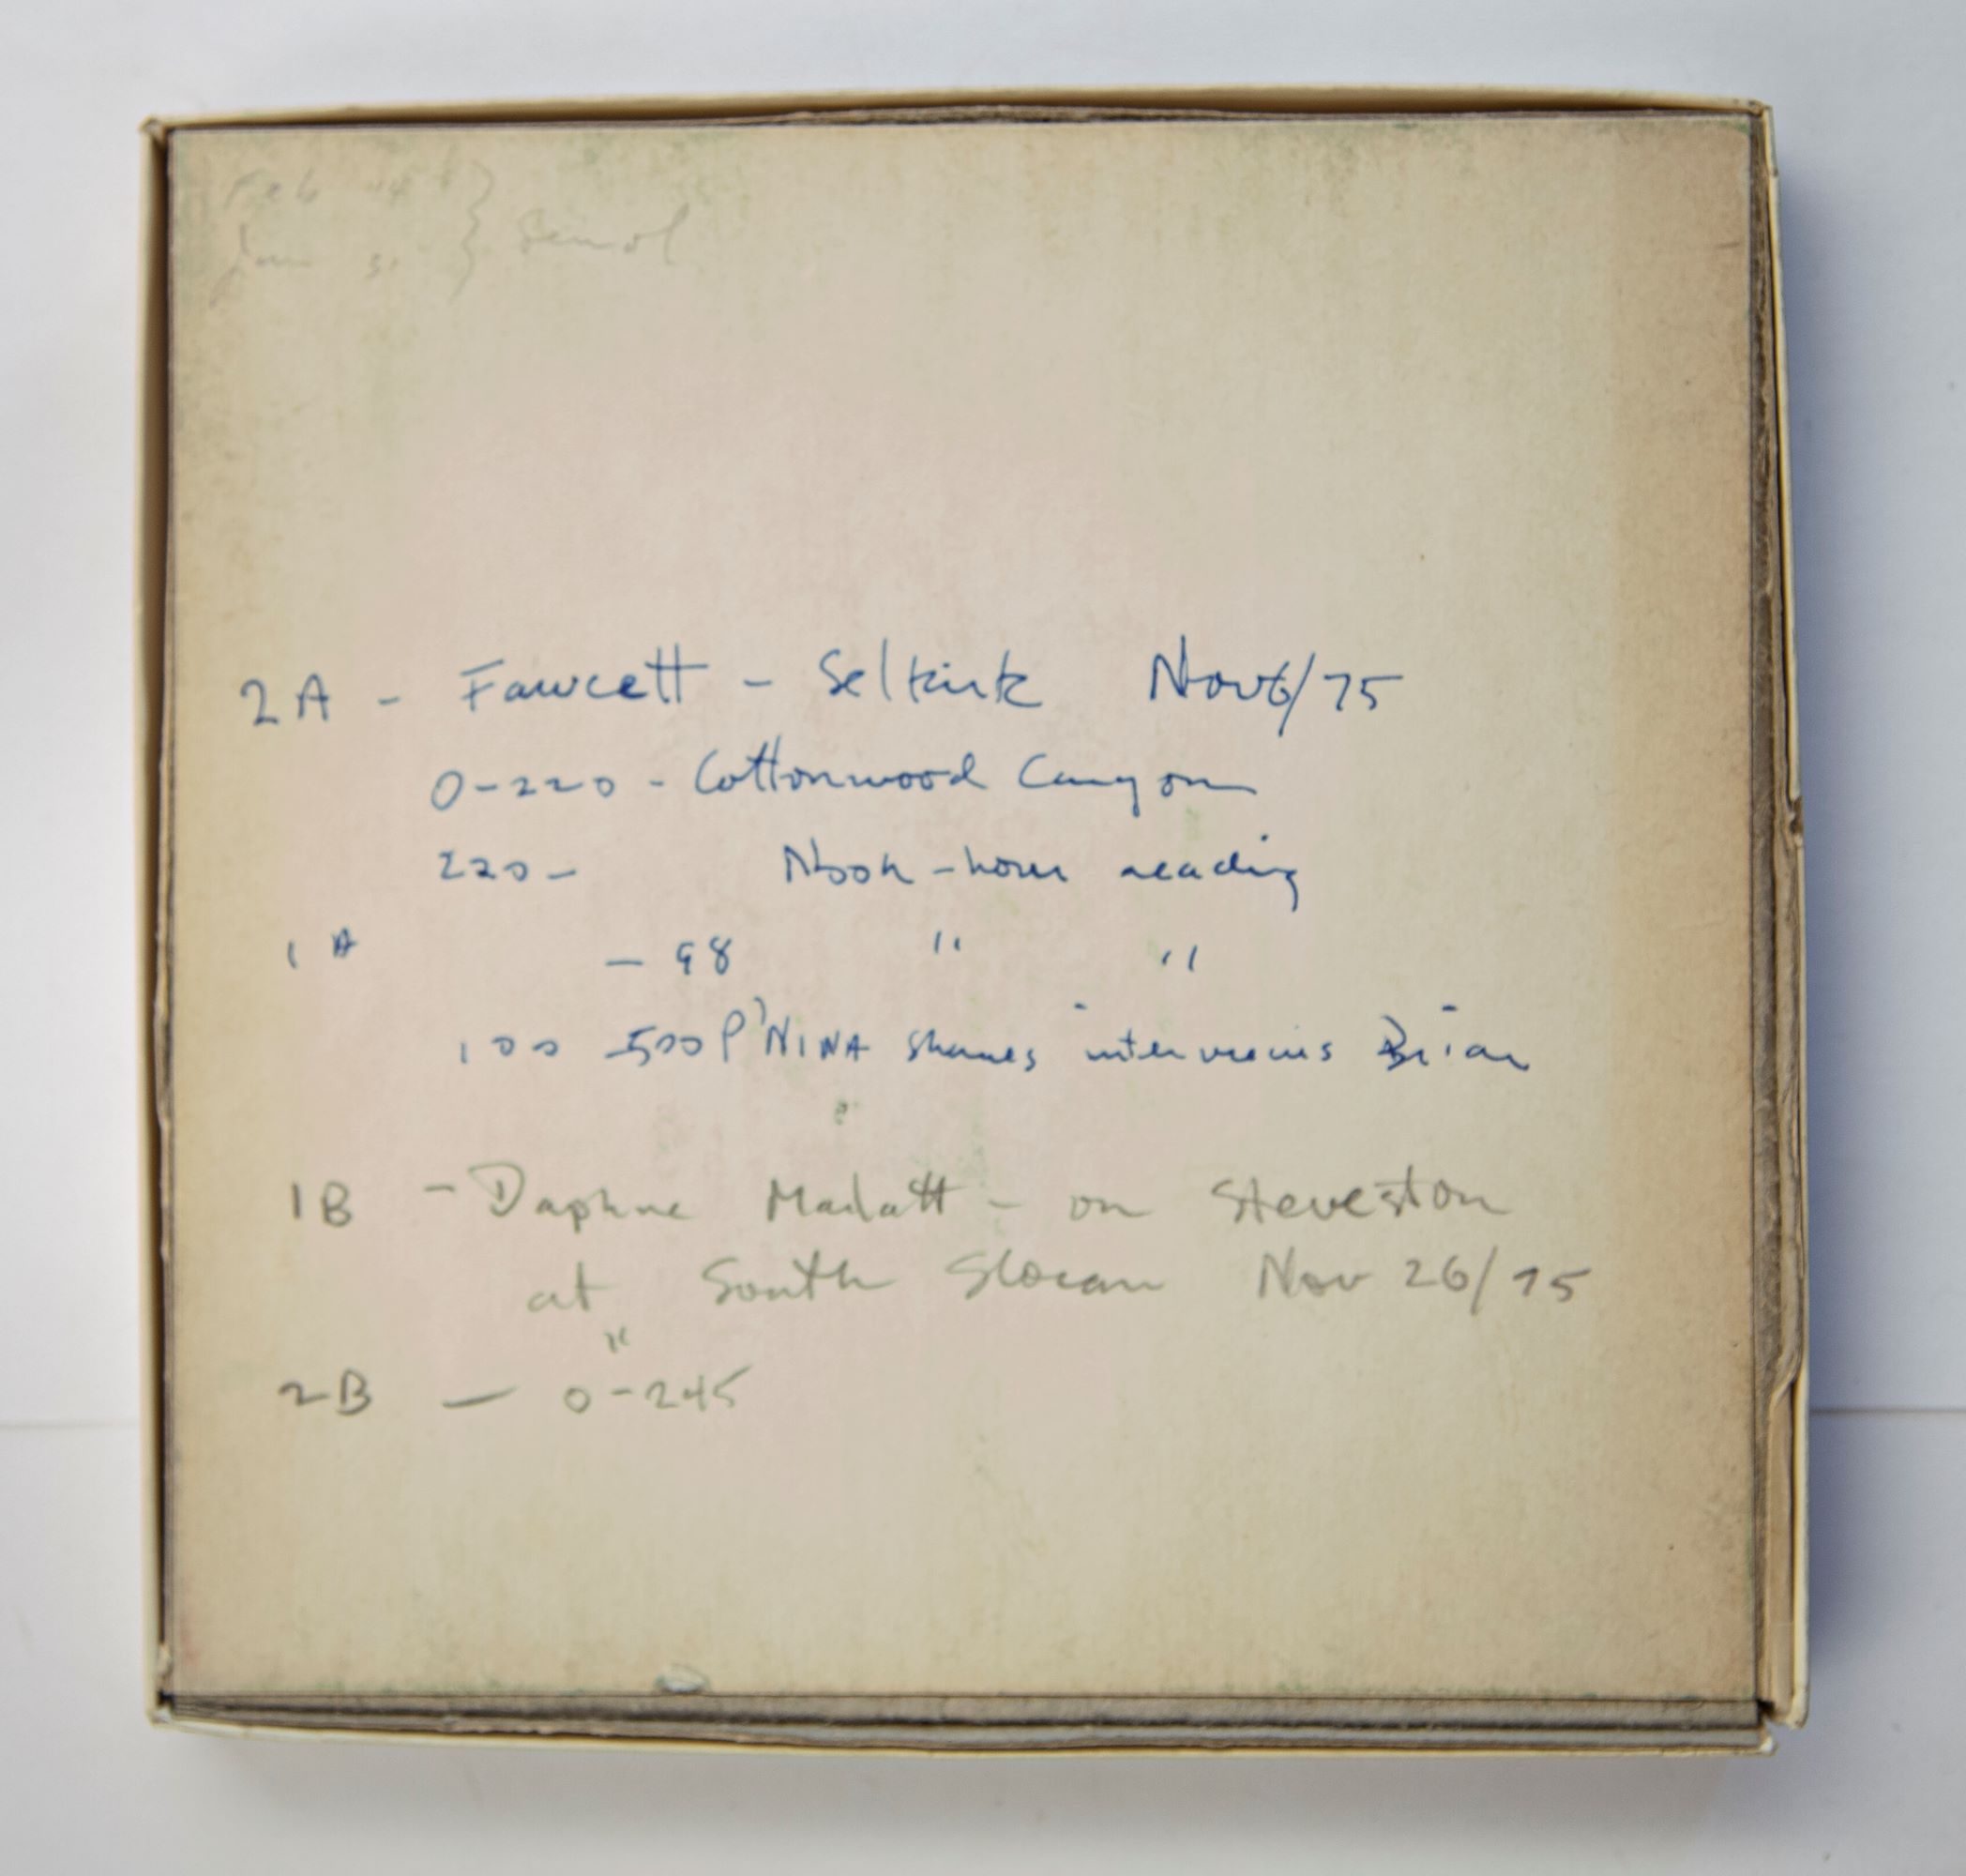 Feb
Jan 31
2A - Fawcett - Selkirk Nov 6/75
0-220 - Cottonwood Canyon
220- Noon-hour reading
1A - 98 " "
100 - 500 P'NINA shames interviews Brian
1B - Daphne Marlatt - on Steveston
at South Slocan Nov 26/75
"
2B - 0-245